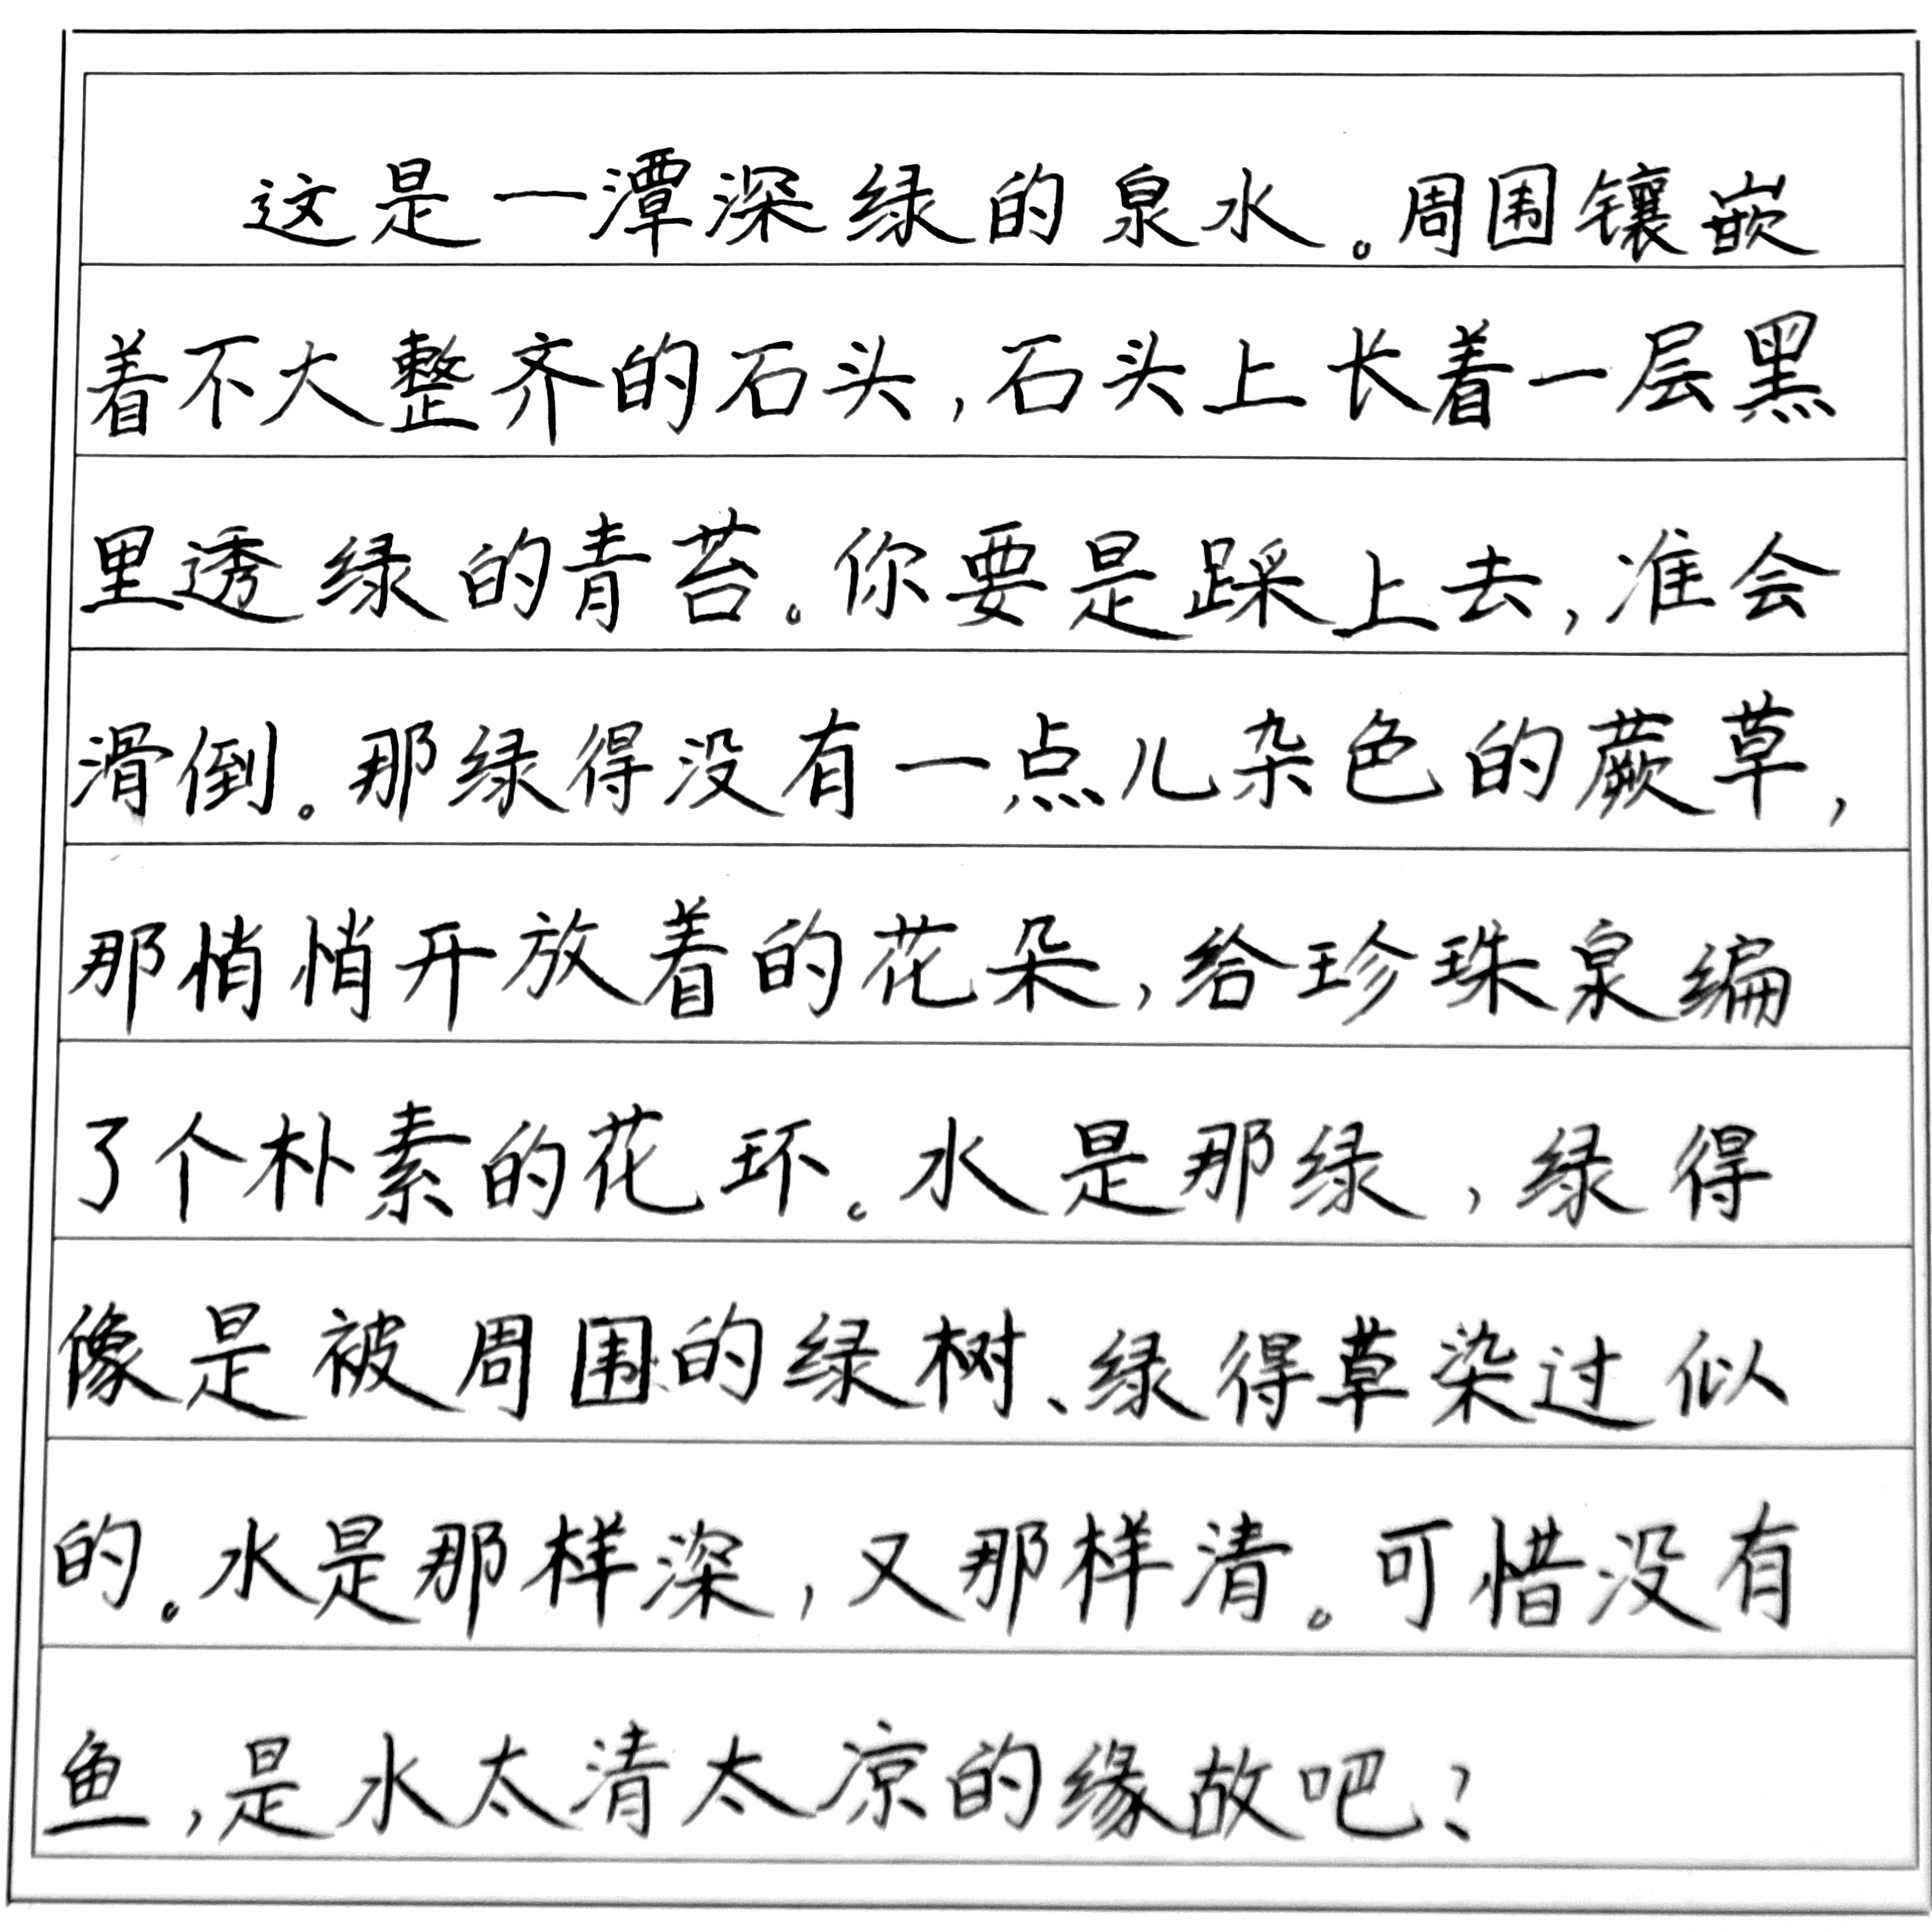 这是一潭深绿的泉水。周围镶嵌
着不大整齐的石头,石头上长着一层黑
里透绿的青苔。你要是踩上去,准会
滑倒。那绿得没有一点儿杂色的蕨草,
那悄悄开放着的花朵,给珍珠泉编
了个朴素的花环。水是那绿,绿得
像是被周围的绿树、绿得草染过似
的。水是那样深,又那样清。可惜没有
鱼,是水太清太凉的缘故吧?